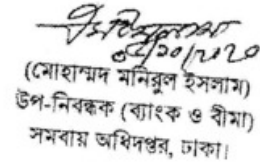 ০৫/১০/২০২০
(মোহাম্মদ মনিরুল ইসলাম)
উপ-নিবন্ধক (ব্যাংক ও বীমা)
সমবায় অধিদপ্তর, ঢাকা।